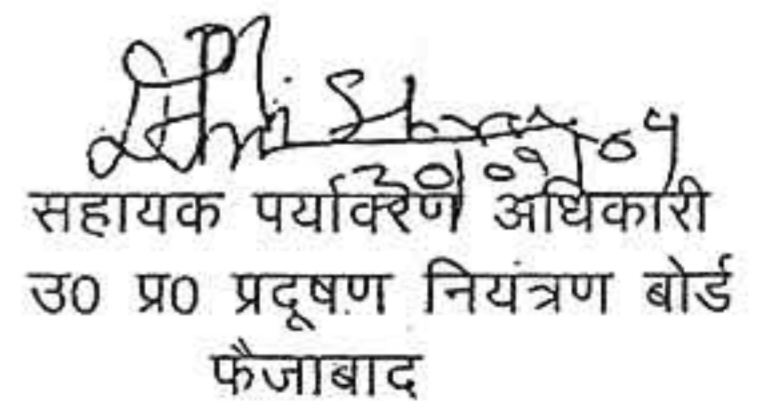 सहायक पर्यावरण अधिकारी
उ0 प्र0 प्रदूषण नियंत्रण बोर्ड
फैजाबाद